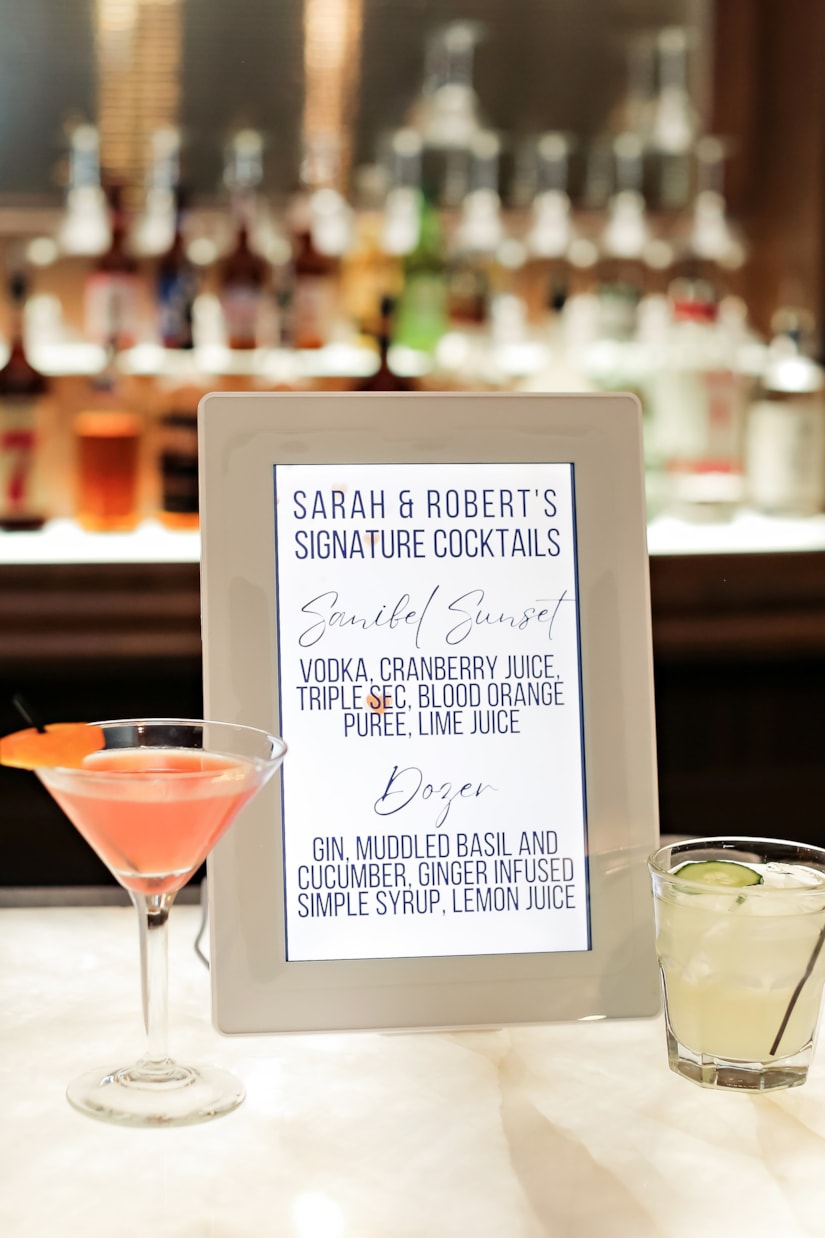 SARAH & ROBERT'S
SIGNATURE COCKTAILS
Sanibel Sunset
VODKA, CRANBERRY JUICE,
TRIPLE SEC, BLOOD ORANGE
PUREE, LIME JUICE
Dozer
GIN, MUDDLED BASIL AND
CUCUMBER, GINGER INFUSED
SIMPLE SYRUP, LEMON JUICE
7